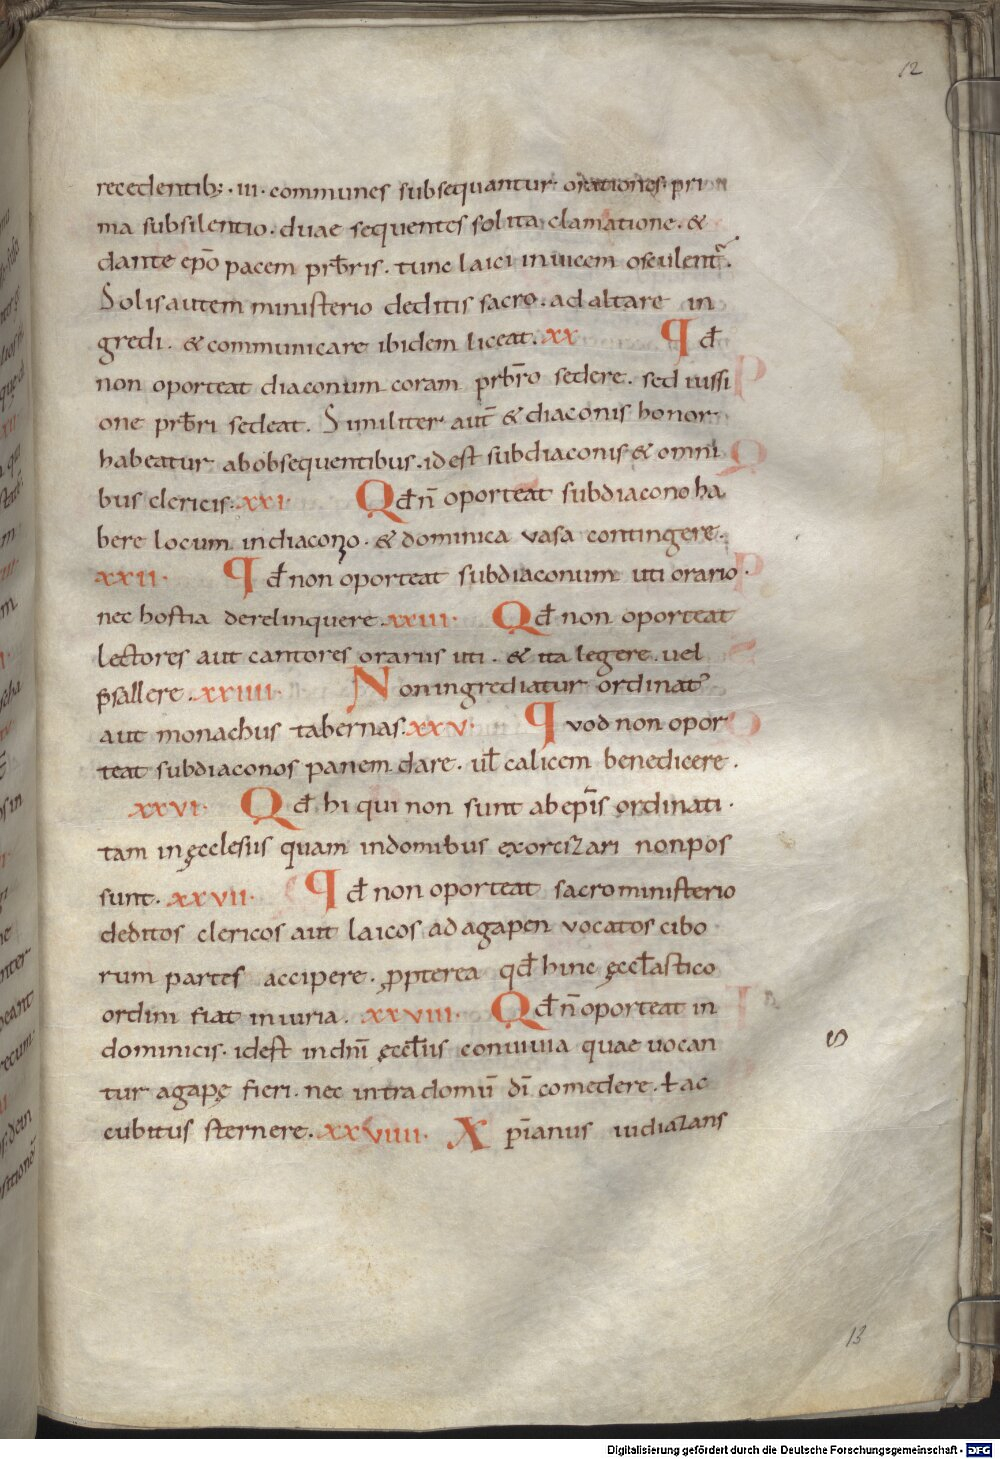 12
recedentib; · iii · communes subsequantur orationes · pri
ma subsilentio · duae sequentes solita clamatione · &
dante epō pacem prb̄ris · tunc laici inuicem osculent̄ ·
Solis autem ministerio deditis sacro · ad altare in
gredi · & communicare ibidem liceat · xx Qd̄
non oporteat diaconum coram prb̄ro sedere · sed iussi
one prb̄ri sedeat · Similiter aut̄ & diaconis honor
habeatur ab obsequentibus · id est subdiaconis & omni
bus clericis · xxi · Qd̄ n̄ oporteat subdiacono ha
bere locum in diacono · & dominica vasa contingere ·
xxii · Qd̄ non oporteat subdiaconum uti orario ·
nec hostia derelinquere · xxiii · Qd̄ non oporteat
lectores aut cantores orariis uti · & ita legere · uel
psallere · xxiiii · Non ingrediatur ordinat'
aut monachus tabernas · xxv · Quod non opor
teat subdiaconos panem dare · ul̄ calicem benedicere ·
xxvi · Qd̄ hi qui non sunt ab epīs ordinati ·
tam in ęcclesiis quam in domibus exorcizari non pos
sunt · xxvii · Qd̄ non oporteat sacro ministerio
deditos clericos aut laicos ad agapen vocatos cibo
rum partes accipere · ꝓpterea qd̄ hinc ęccl̄astico
ordini fiat iniuria · xxviii · Qd̄ n̄ oporteat in
dominicis · id est in dn̄i ęccl̄iis conuiuia quae uocan
tur agapę fieri · nec intra domū dī comedere · ł ac
cubitus sternere · xxviiii · Xpīanus iudaizans
13
Digitalisierung gefördert durch die Deutsche Forschungsgemeinschaft - DFG